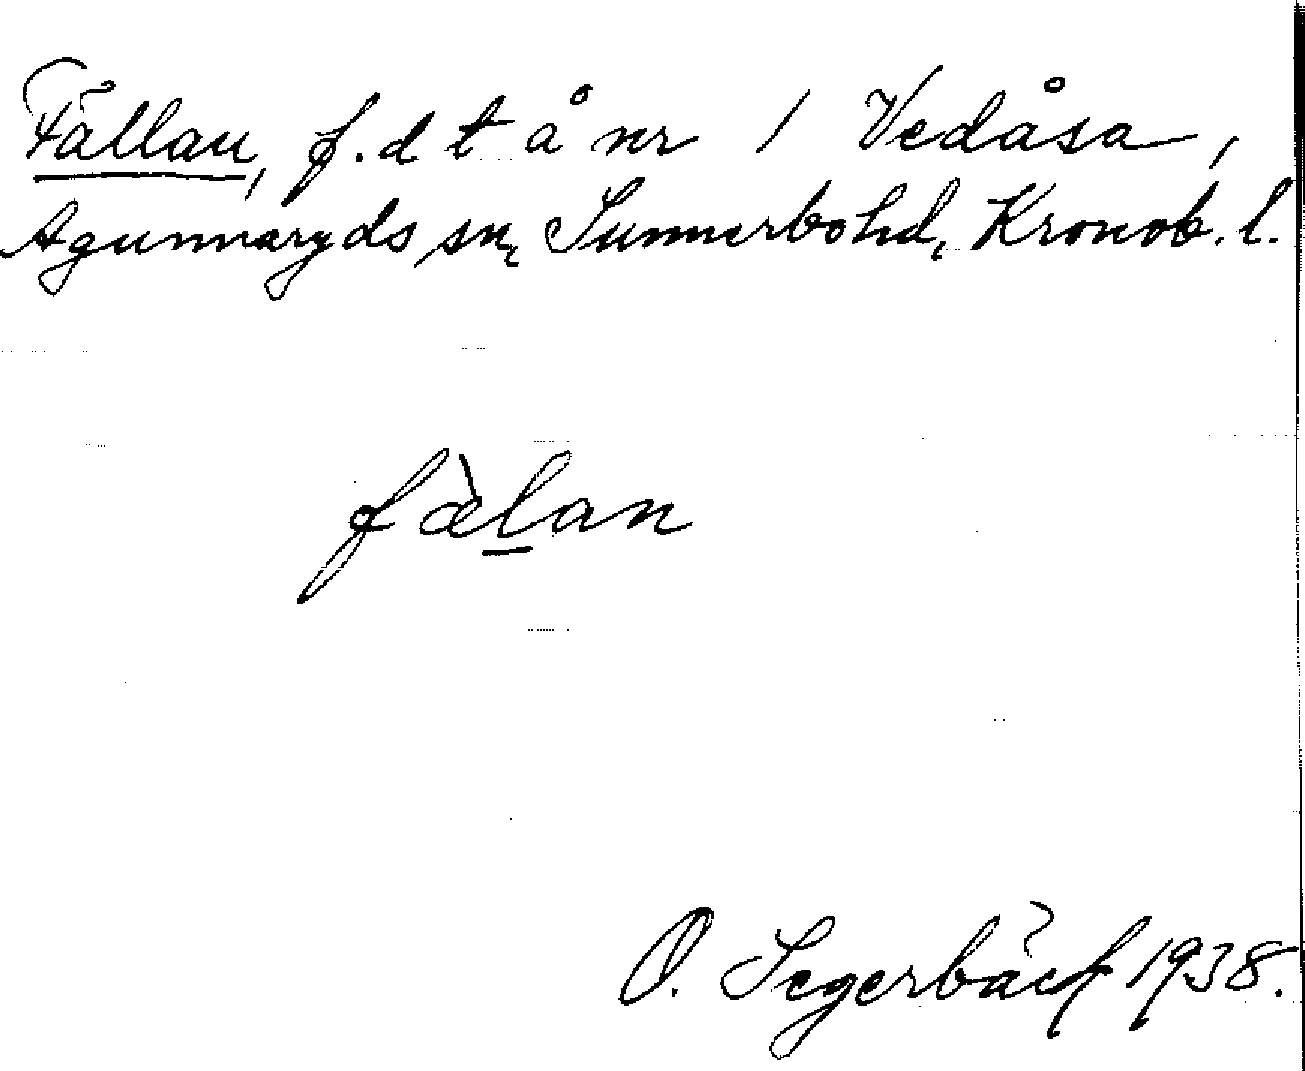 Fällan, f.d t å nr 1 Vedåsa,
Agunnaryds sn, Sunnerbohd, Kronob. l.
fæ̀l̲an
O. Segerbäck 1938.